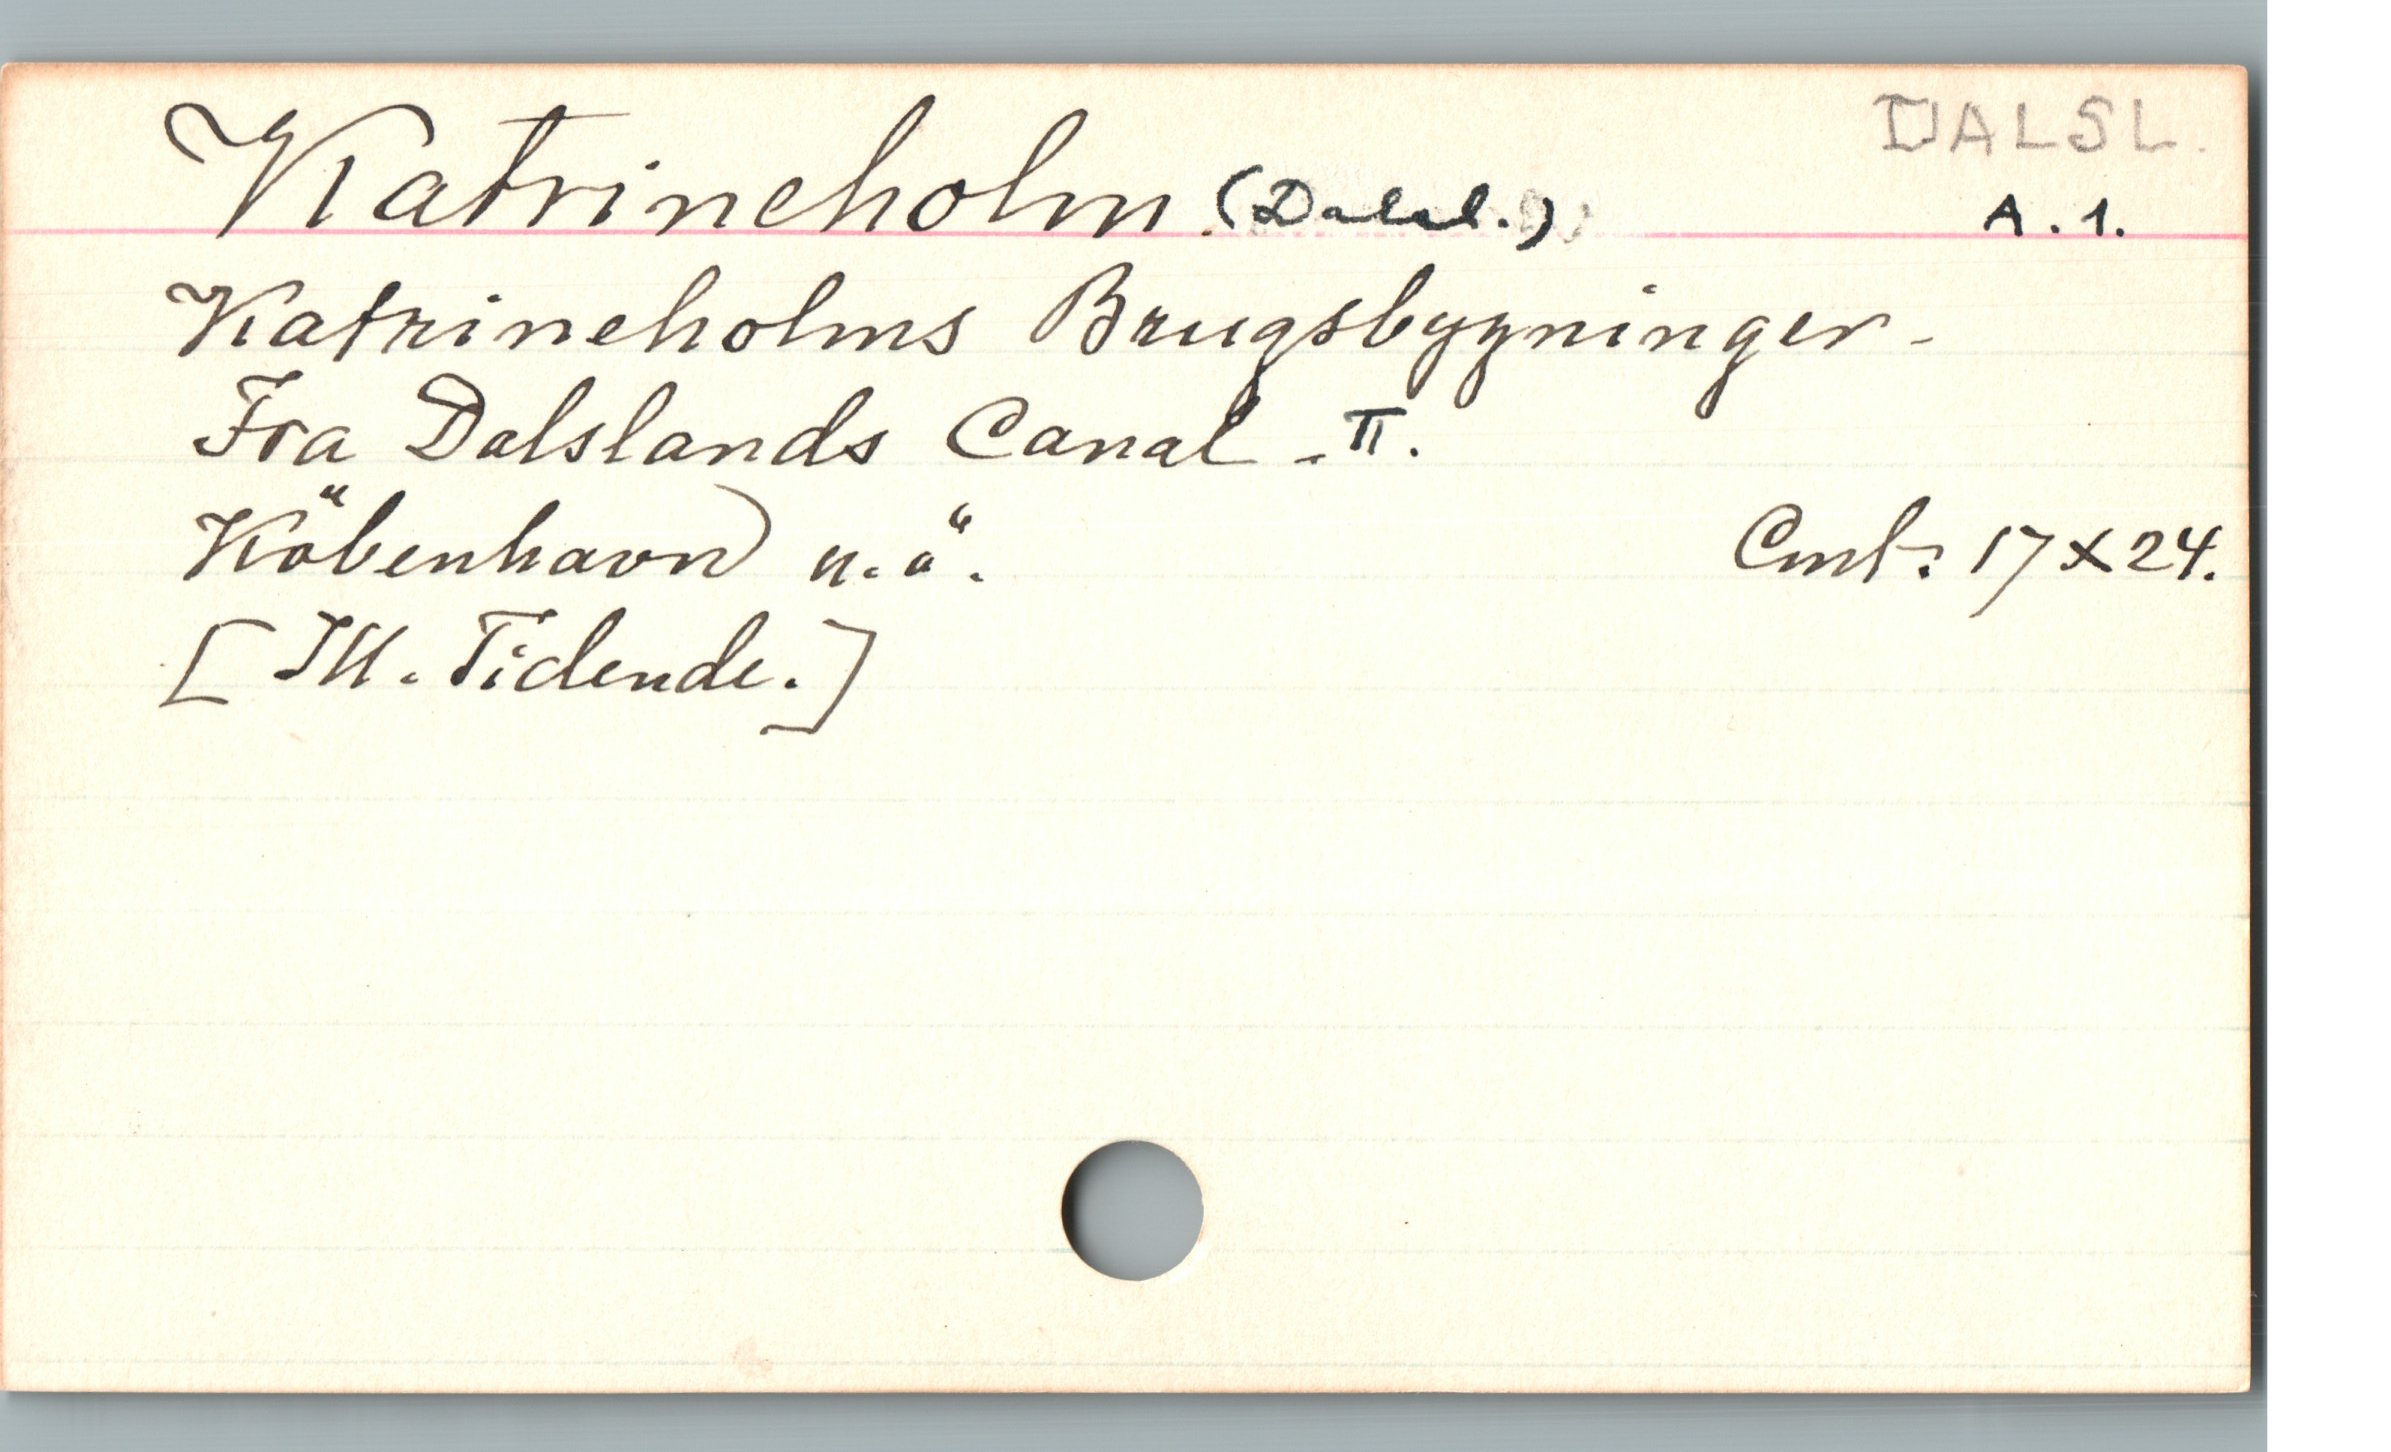 DALSL.
Katrineholm. (Dalsl.) A. 1.
Katrineholms Brugsbygninger.
Fra Dalslands Canal. II.
Köbenhavn u. ö. Cmt: 17 x 24.
[Ill. Tidende.]